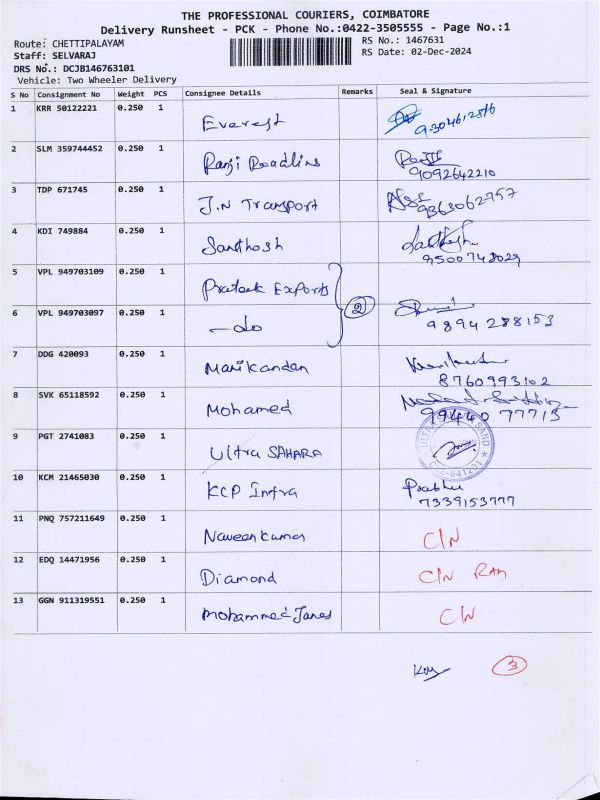 THE PROFESSIONAL COURIERS, COIMBATORE
Delivery Runsheet - PCK - Phone No.:0422-3505555 - Page No.:1
Route: CHETTIPALAYAM RS No.: 1467631
Staff: SELVARAJ RS Date: 02-Dec-2024
DRS No.: DCJB146763101
Vehicle: Two Wheeler Delivery
S No Consignment No Weight PCS Consignee Details Remarks Seal & Signature
1 KRR 50122221 0.250 1 Everest
2 SLM 359744452 0.250 1 Ranji Roadlins
9092642210
3 TDP 671745 0.250 1 J.N Transport 9363062757
4 KDI 749884 0.250 1 Santhosh
9500748029
5 VPL 949703109 0.250 1 Prateek Exports
2
6 VPL 949703097 0.250 1 -do
9894 288153
7 DDG 420093 0.250 1 Manikandan
8760993102
8 SVK 65118592 0.250 1 Mohamed
99440 77713
9 PGT 2741083 0.250 1 Ultra SAHARA
10 KCM 21465030 0.250 1 KCP Infra Prabhu
7339153777
11 PNQ 757211649 0.250 1 Naveen Kumar C/N
12 EDQ 14471956 0.250 1 Diamond C/N RAM
13 GGN 911319551 0.250 1 Mohammed Janes C/N
3